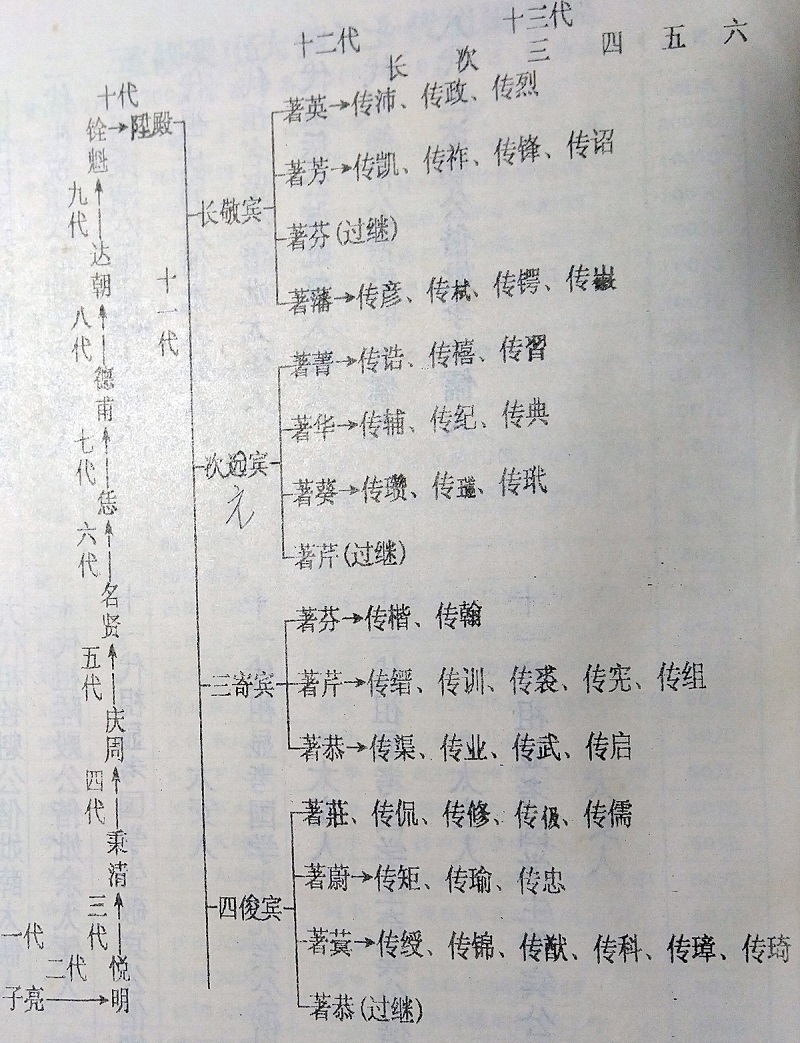 十二代
十三代
长 次 三 四 五 六
十代
铨→陞殿
魁
九代
达朝
八代
德甫
七代
恁
六代
名贤
五代
庆周
四代
秉清
三代
悦明
二代
一代
子亮
十一代
长敬宾
著英→传沛、传政、传烈
著芳→传凯、传祚、传锋、传诏
著芬(过继)
著藩→传彦、传栻、传锷、传
次远宾
元
著菁→传诰、传禧、传習
著华→传辅、传纪、传典
著葵→传瓒、传、传玳
著芹(过继)
三寄宾
著芬→传楷、传翰
著芹→传缙、传训、传裘、传宪、传组
著恭→传渠、传业、传武、传启
四俊宾
著莊、传侃、传修、传伋、传儒
著蔚→传矩、传瑜、传忠
著蓂→传绶、传锦、传猷、传科、传璋、传琦
著恭(过继)